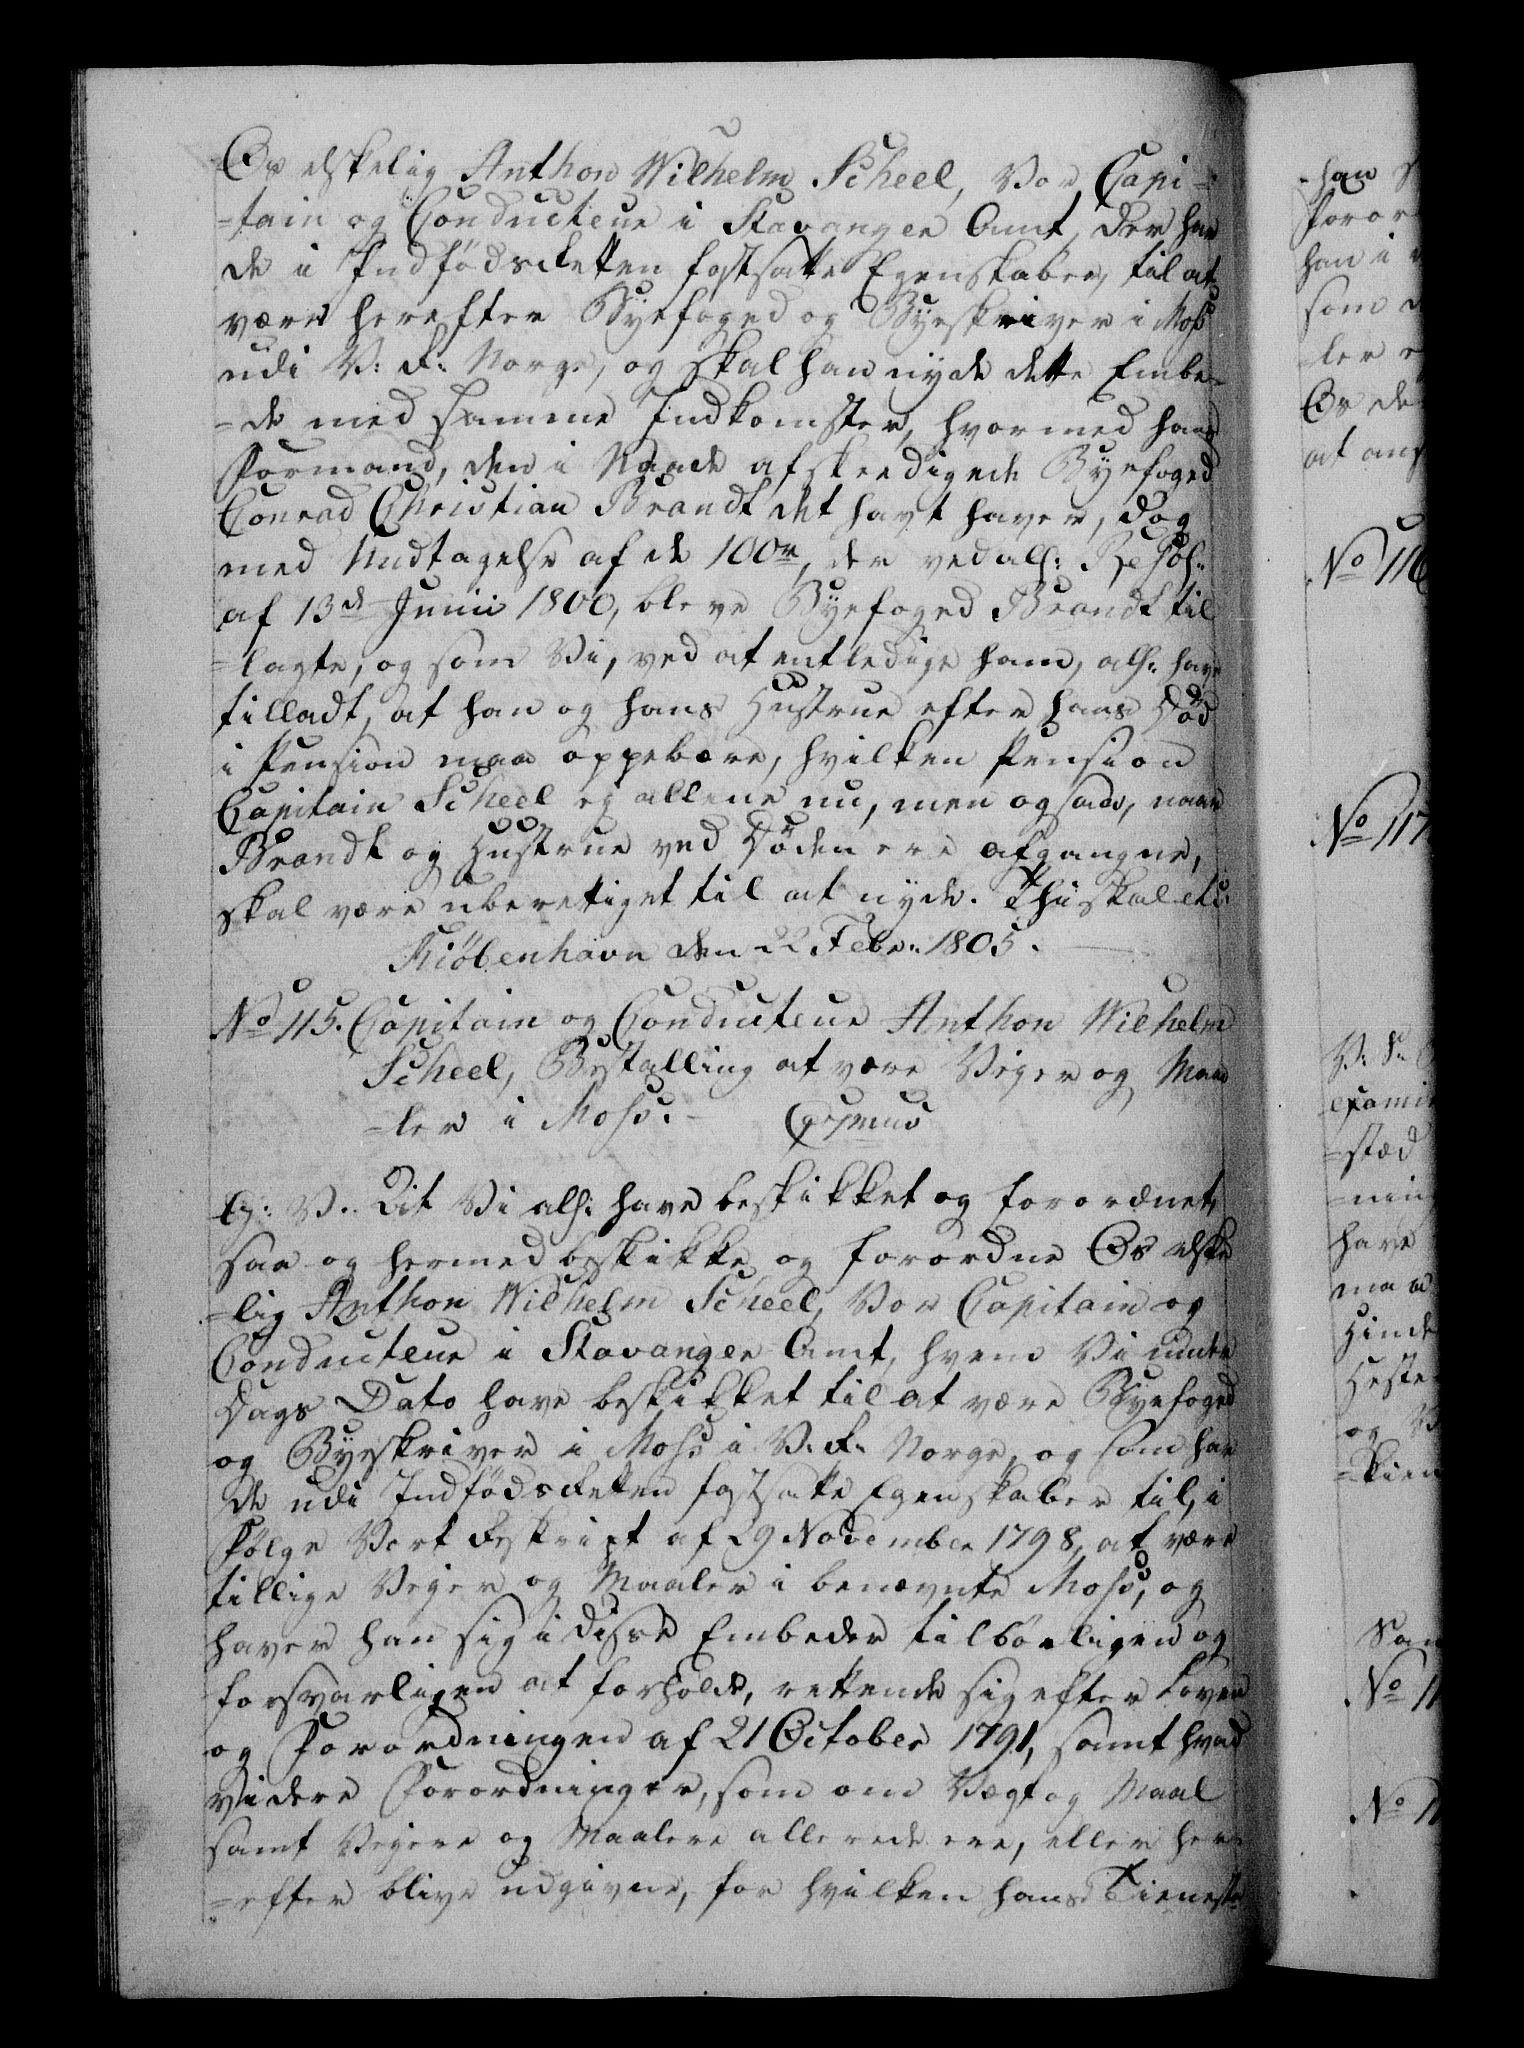 Os elskelig Anthon Wilhelm Scheel, Vor Capi-
-tain og Conducteur i Stavanger Amt, der har
de i Indfødsretten fastsatte Egenskaber, til at
være herefter Byefoged og Byeskriver i Moss
udi V: R: Norge, og skal han nyde dette Embe-
-de med samme Indkomster, hvormed hans
Formand, den i Naade afskeedigede Byefoged
Conrad Christian Brandt det havt haver, dog
med Undtagelse af de 100 r, der ved all: Resol:
af 13d Junii 1800, bleve Byefoged Brandt til
-lagte, og som Vi, ved at entledige ham, all: have
tilladt, at han og hans Hustrue efter hans Død
i Pension maa oppebære, hvilken Pension
Capitain Scheel ej allene nu, men ogsaa, naar
Brandt og Hustrue ved Døden ere afgangne,
skal være uberettiget til at nyde. Thi skal etc.
Kiöbenhavn den 22 Febr: 1805.
No 115. Capitain og Conducteur Anthon Wilhelm
Scheel, Bestalling at være Vejer og Maa
-ler i Moss.
G: V: Vi all: have beskikket og forordnet,
saa og hermed beskikke og forordne Os elske
-lig Anthon Wilhelm Scheel, Vor Capitain og
Conducteur i Stavanger Amt, hvem Vi under
Dags Dato have beskikket til at være Byefoged
og Byeskriver i Moss i V: R: Norge, og som har
de udi Indfødsretten fastsatte Egenskaber til, i
Følge Vort Reskript af 29 November 1798, at være
tillige Vejer og Maaler i benævnte Moss, og
haver han sig i disse Embeder tilbörligen og
forsvarligen at forholde, rettende sig efter Loven
og Forordningen af 21 October 1791, samt hvad
videre Forordninger, som om Vægt og Maal
samt Vejere og Maalere allerede ere, eller her-
-efter blive udgivne, for hvilken hans Tieneste